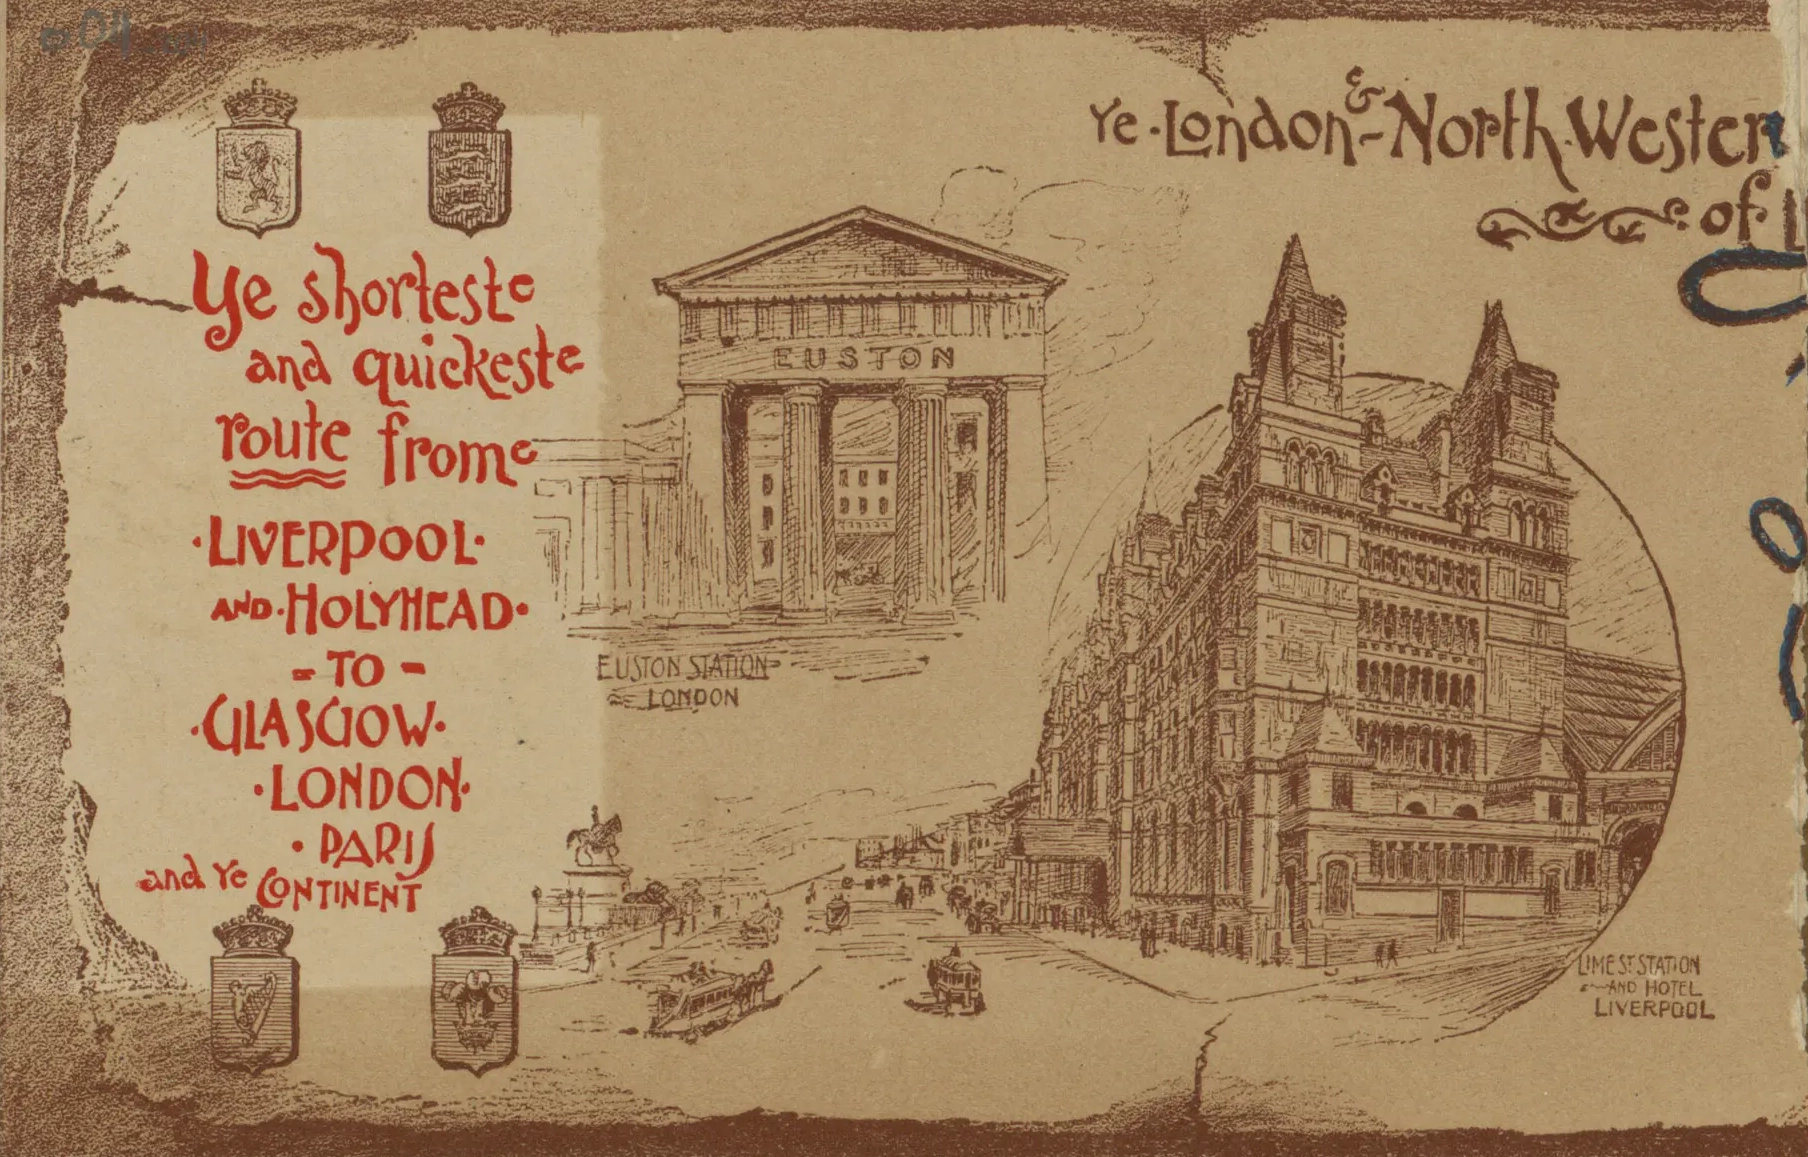 Ye shorteste
and quickeste
route frome
·LIVERPOOL·
AND·HOLYHEAD·
- TO -
·GLASGOW·
·LONDON·
·PARIS
and Ye CONTINENT
EUSTON
EUSTON STATION
LONDON
Ye·London & North Western
of
LIME ST STATION
AND HOTEL
LIVERPOOL